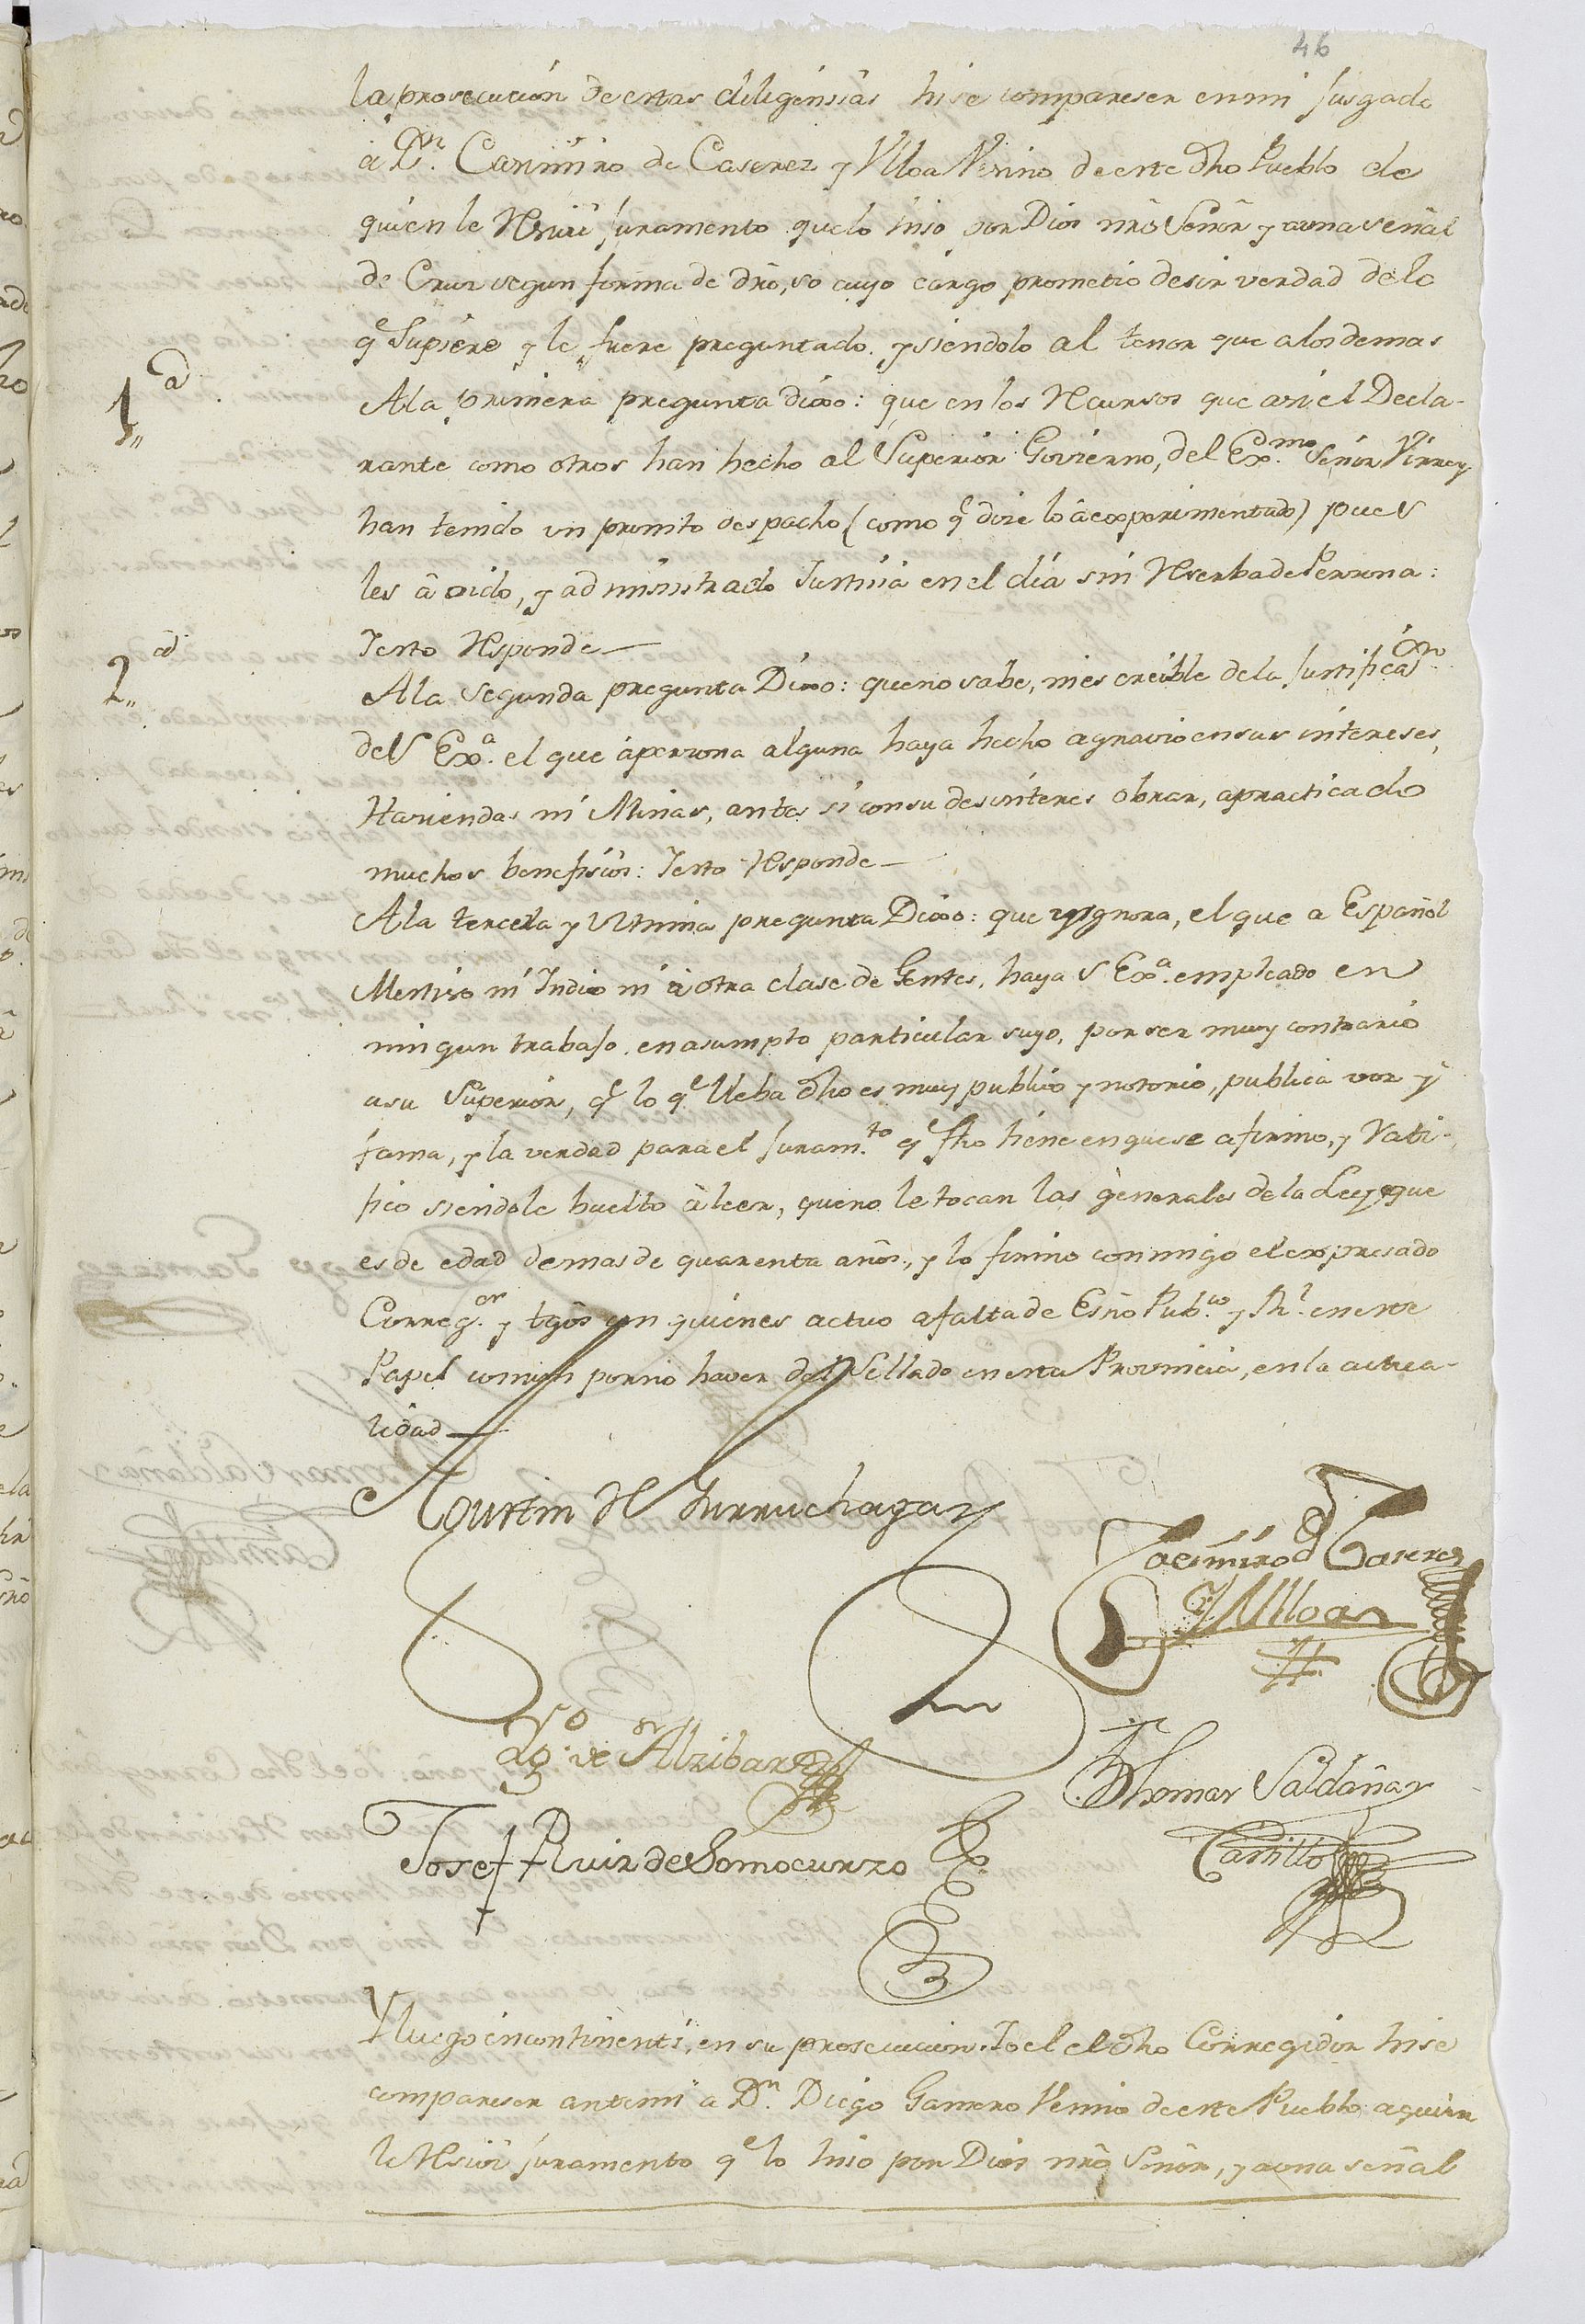 46
la prosecucion de estas diligensias hise compareser en mi Jusgado
a Dn. Casimiro de Caserez y Ulloa Vesino de este dho Pueblo de
quien le Resivi Juramento que lo hiso por Dios nrô Señor y a una señal
de Cruz segun forma de drô, so cuyo cargo prometio desir verdad de lo
qe Supiere y le fuere preguntado. y siendolo al tenor que a los demas
1,,a
A la primera pregunta dixo: que en los Recursos que asi el Decla-
rante como otros han hecho al Superior Govierno, del Exmo. Señor Virrey
han tenido un promto despacho (como qe dize lo â experimentado) pues
les â oido, y administrado Justicia en el dia sin Reserba de Persona:
Iesto Responde—
2,,da
A la segunda pregunta Dixo: que no sabe, ni es creible de la Justificacion
de S Exa. el que à persona alguna haya hecho agravio en sus intereses,
Haziendas ni Minas, antes si con su desinteres obrar, a practicado
muchos benefisios: Iesto Responde—
A la tercera y Ultima pregunta Dixo: que ygnora, el que a Español
Mestizo ni Indio ni à otra clase de Gentes, haya S Exa. empleado en
ningun trabajo, en asumpto particular suyo, por ser muy contrario
a su Superior, qe lo qe lleba dho es muy publico y notorio, publica vos y
fama, y la verdad para el Juramto. qe fho tiene en que se afirmo, y Rati-
fico siendole buelto à leer, que no le tocan las generales de la Ley que
es de edad de mas de quarenta años, y lo firmo conmigo el expresado
Corregor. y tgôs con quienes actuo a falta de Esño Pubco. y Rl. en este
Papel comun por no haver del Sellado en esta Provincia, en la actua-
lidad—
Agustin de Jurruchaga
Casimiro d Caseres
y Ulloa
Ago. de Alzibar
Thomas Saldaña
Josef Ruiz de Somocurzo
Castillo
Y luego incontinenti, en su prosecucion. Io el el dho Corregidor hise
compareser ante mi a Dn. Diego Gamero Vesino de este Pueblo, a quien
le Resivi juramento qe lo hiso por Dios nrô Señor, y a una señal